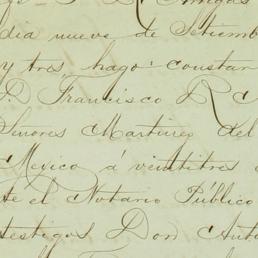 dia nueve de Setiemb
y tres, hago constar
D. Francisco R
Señores Martinez del
Mexico á veintitres
te el Notario Público
testigos Don Anto